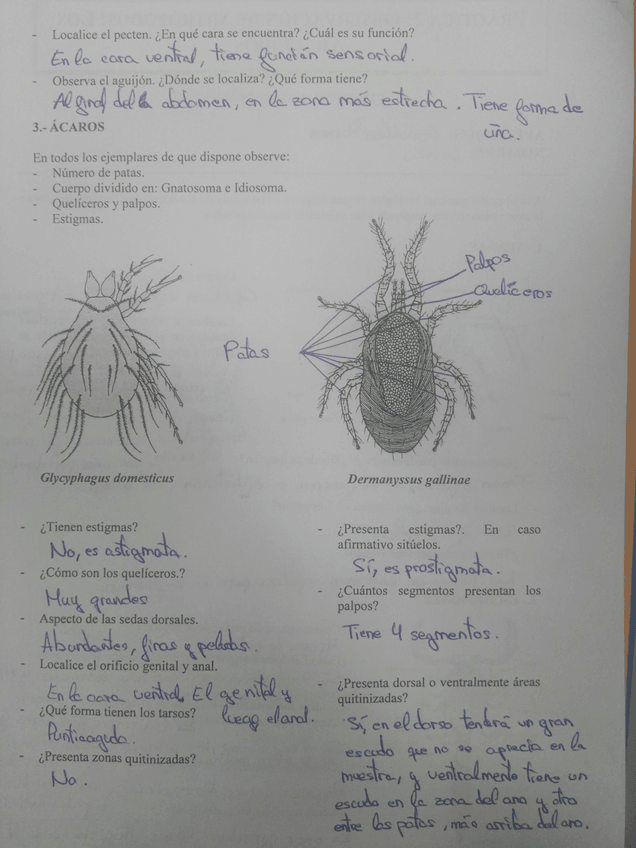 - Localice el pecten. ¿En qué cara se encuentra? ¿Cuál es su función?
En la cara ventral, tiene función sensorial.
- Observa el aguijón. ¿Dónde se localiza? ¿Qué forma tiene?
Al final del abdomen, en la zona más estrecha. Tiene forma de
uña.
3.- ÁCAROS
En todos los ejemplares de que dispone observe:
- Número de patas.
- Cuerpo dividido en: Gnatosoma e Idiosoma.
- Quelíceros y palpos.
- Estigmas.
Palpos
Quelíceros
Patas
Glycyphagus domesticus
Dermanyssus gallinae
- ¿Tienen estigmas?
No, es astigmata.
- ¿Cómo son los quelíceros.?
Muy grandes
- Aspecto de las sedas dorsales.
Abundantes, finas y peladas.
- Localice el orificio genital y anal.
En la cara ventral. El genital y
luego el anal.
- ¿Qué forma tienen los tarsos?
Puntiaguda.
- ¿Presenta zonas quitinizadas?
No.
- ¿Presenta estigmas?. En caso
afirmativo sitúelos.
Sí, es prostigmata.
- ¿Cuántos segmentos presentan los
palpos?
Tiene 4 segmentos.
- ¿Presenta dorsal o ventralmente áreas
quitinizadas?
Sí, en el dorso tendrá un gran
escudo que no se aprecia en la
muestra, y ventralmente tiene un
escudo en la zona del ano y otro
entre las patas, más arriba del ano.